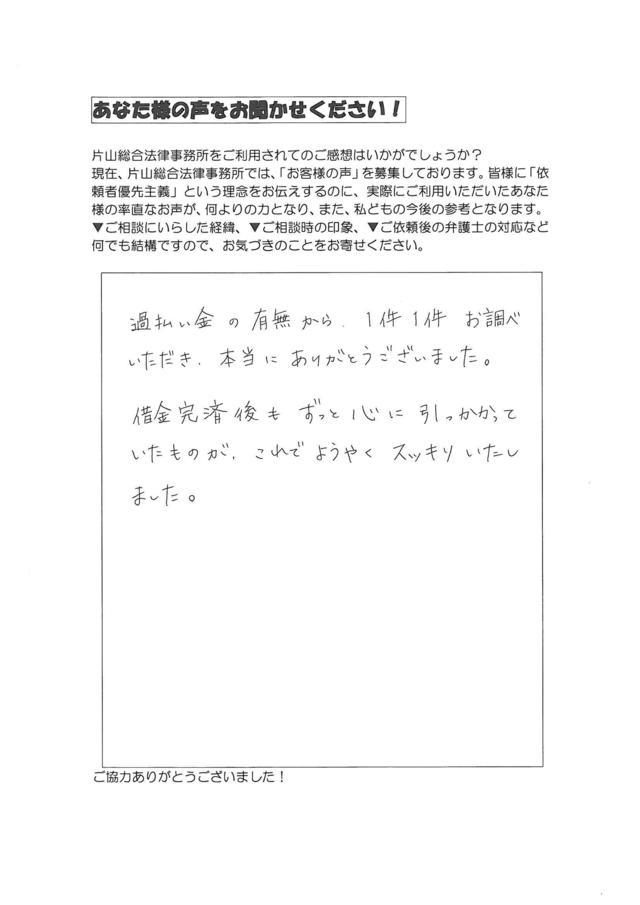 あなた様の声をお聞かせください！
片山総合法律事務所をご利用されてのご感想はいかがでしょうか？
現在、片山総合法律事務所では、「お客様の声」を募集しております。皆様に「依
頼者優先主義」という理念をお伝えするのに、実際にご利用いただいたあなた
様の率直なお声が、何よりの力となり、また、私どもの今後の参考となります。
▼ご相談にいらした経緯、▼ご相談時の印象、▼ご依頼後の弁護士の対応など
何でも結構ですので、お気づきのことをお寄せください。
過払い金の有無から、1件1件お調べ
いただき、本当にありがとうございました。
借金完済後もずっと心に引っかかって
いたものが、これでようやくスッキリいたし
ました。
ご協力ありがとうございました！